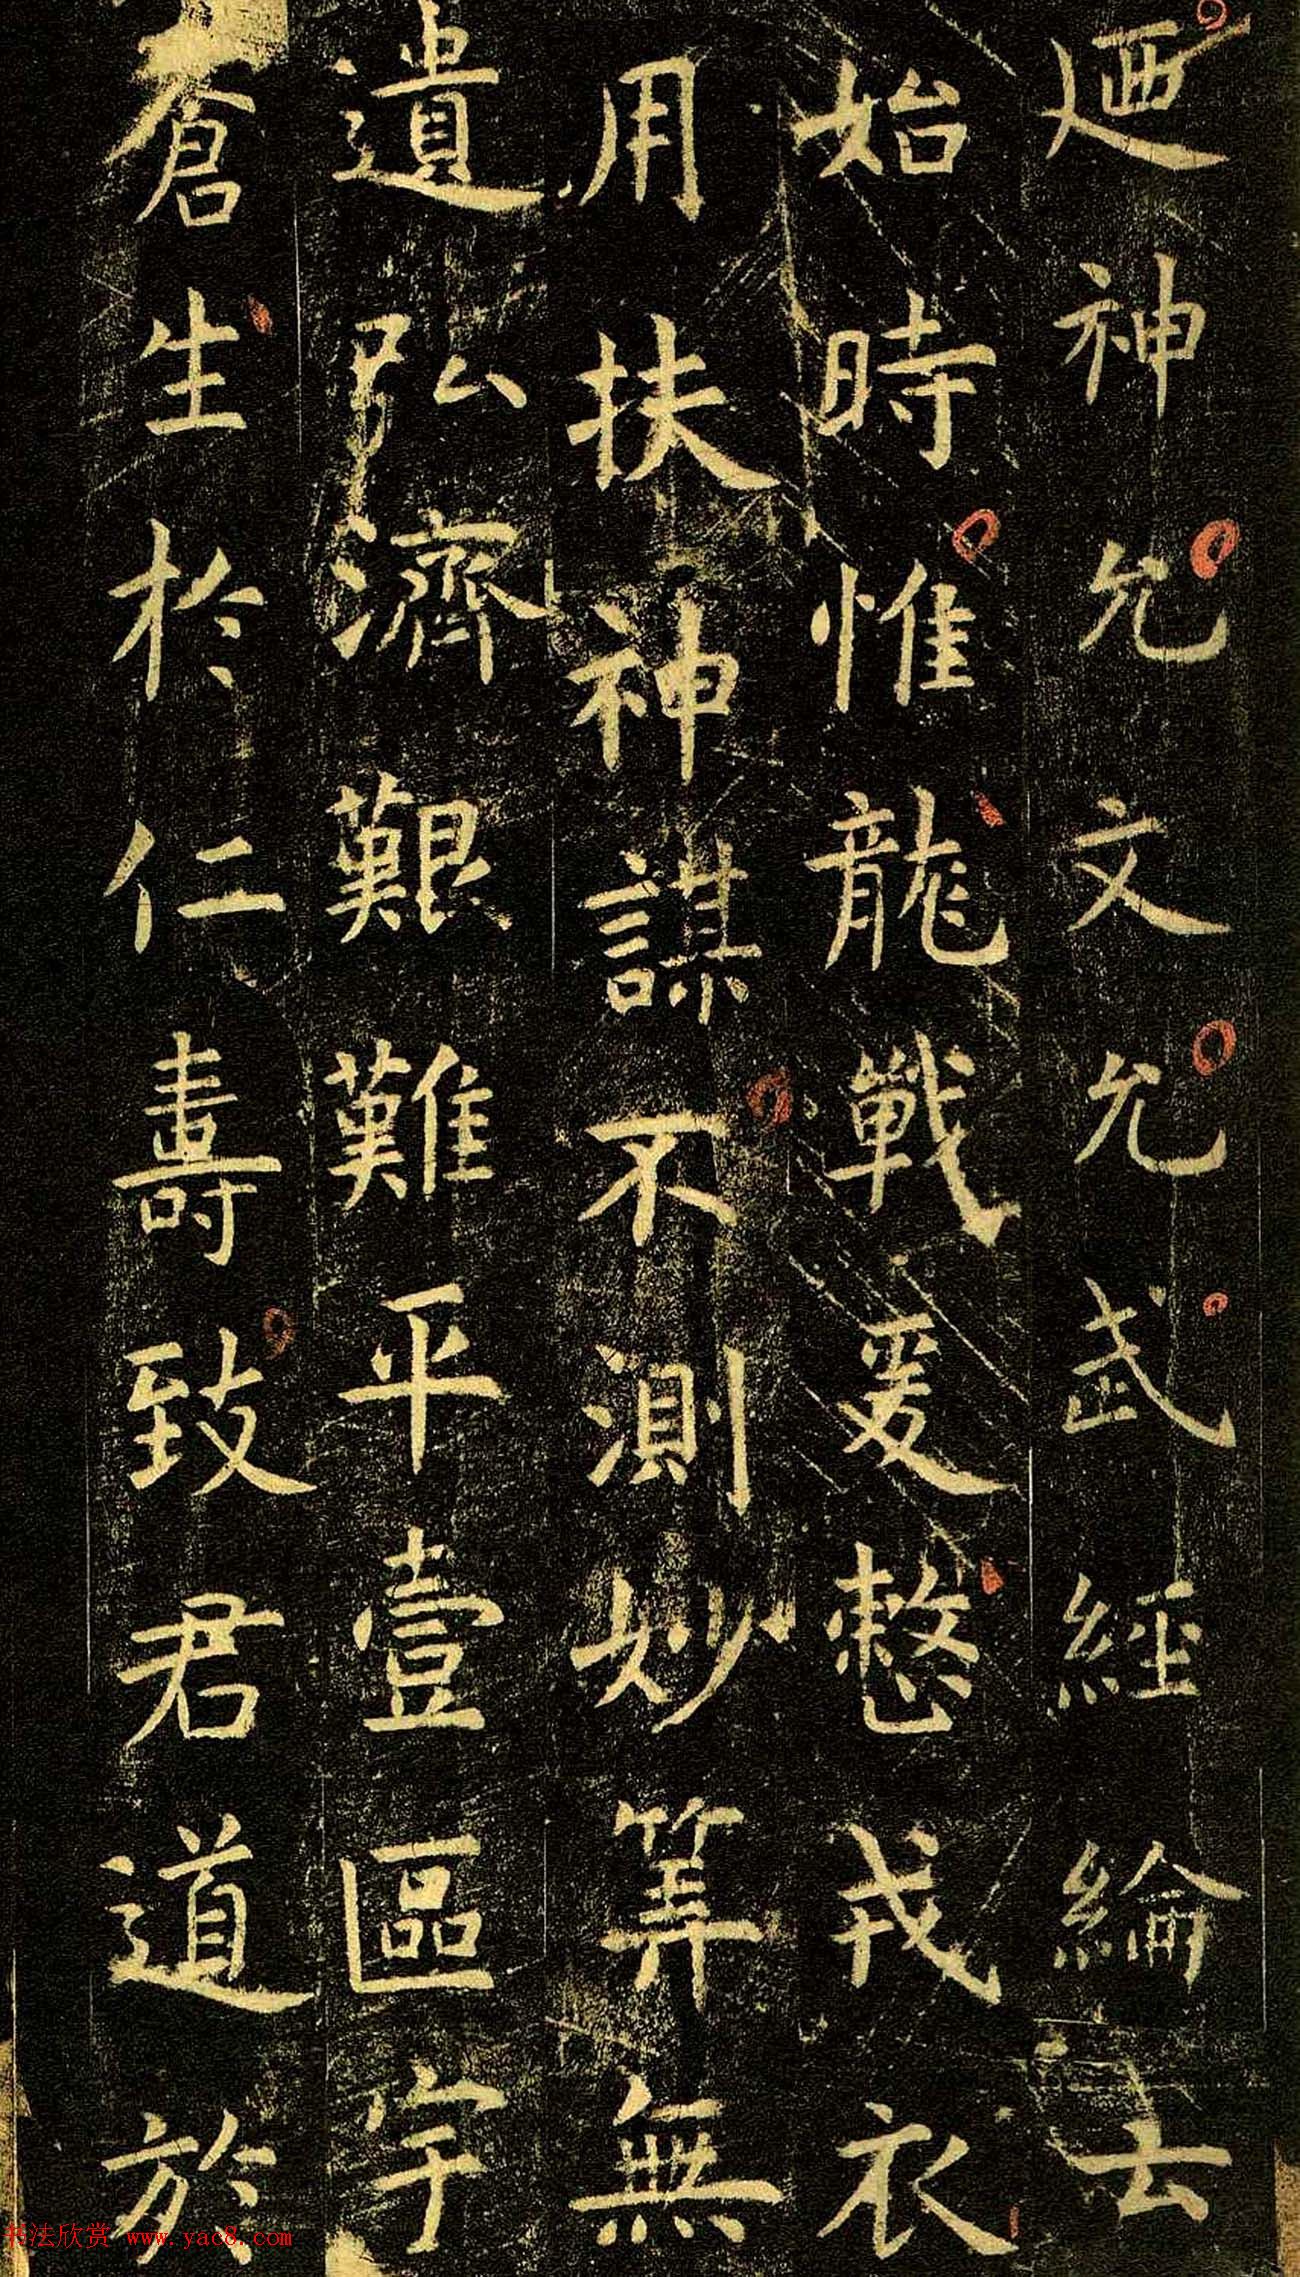 迺神允文允武經綸云
始時惟龍戰爰整戎衣
用扶神謀不測妙筭無
遺弘濟艱難平壹區宇
蒼生於仁壽致君道於
书法欣赏 www.yac8.com